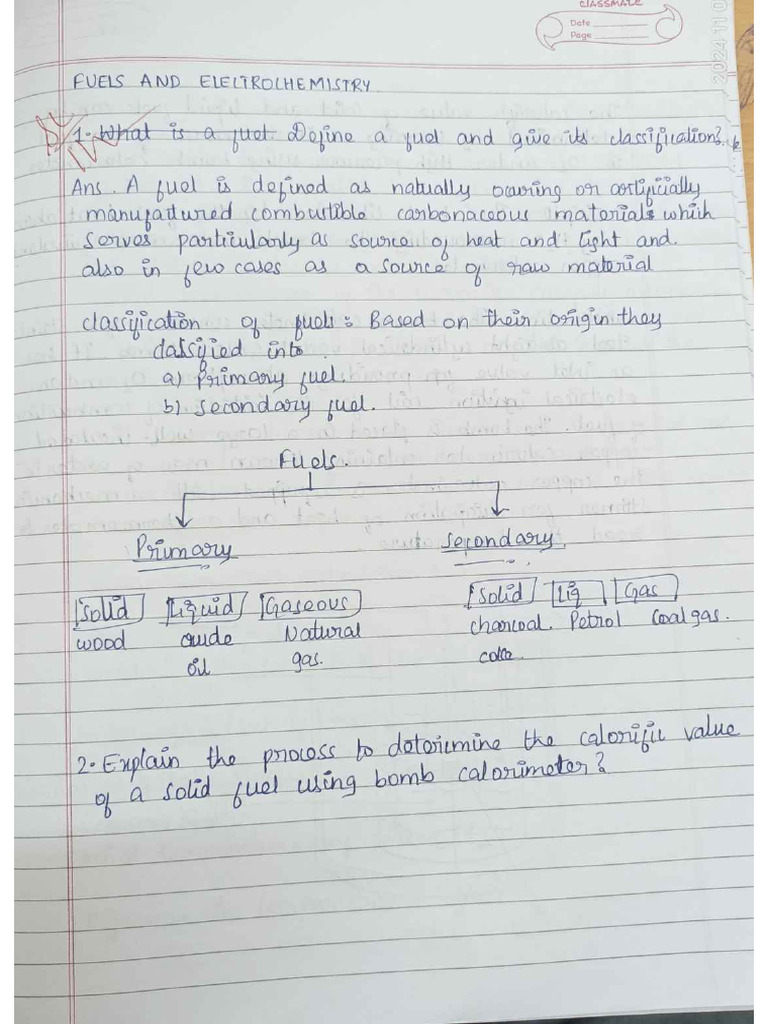 CLASSMATE
Date
Page
2024 11 0
FUELS AND ELELTROLHEMISTRY.
1. What is a fuel Define a fuel and give its classification?
Ans. A fuel is defined as natually ocuring or artificially
manufactured combustible carbonaceous materials which
serves particularly as source of heat and light and.
also in few cases as a source of raw material
classification of fuels: Based on their origin they
classified into
a) Primary fuel.
b) Secondary fuel.
Fuels.
Primary Secondary
Solid Liquid Gaseous Solid Liq Gas
wood crude Natural charcoal. Petrol Coal gas.
oil gas. coke
2. Explain the process to determine the calorific value
of a solid fuel using bomb calorimeter?